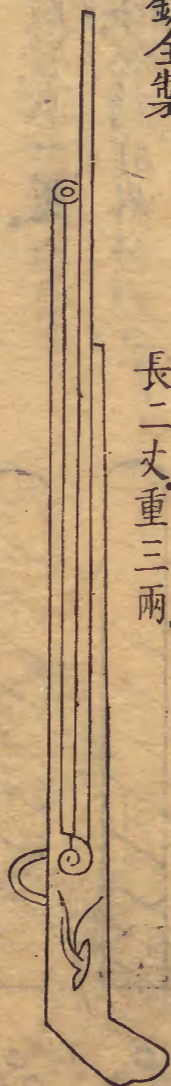 銃全製
長二丈重三兩